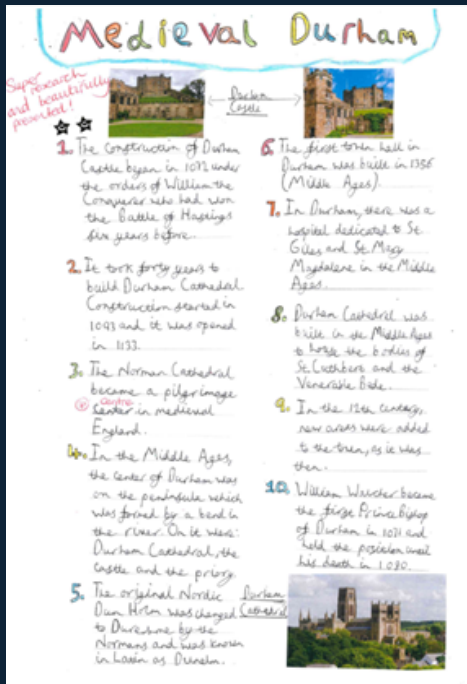 Medieval Durham
Super
research
and beautifully
presented!
Durham
Castle
1. The construction of Durham
Castle began in 1072 under
the orders of William the
Conquerer who had won
the Battle of Hastings
six years before.
2. It took forty years to
build Durham Cathedral
Construction started in
1093 and it was opened
in 1133.
3. The Norman Cathedral
became a pilgrimage
centre
center in medieval
England.
4. In the Middle Ages,
the center of Durham was
on the peninsula which
was formed by a bend in
the river. On it were:
Durham Cathedral, the
castle and the priory
5. The original Nordic
Dun Holm was changed
to Duresme by the
Normans and was known
in Latin as Dunelm.
6. The first town hall in
Durham was built in 1356
(Middle Ages).
7. In Durham, there was a
hospital dedicated to St
Giles and St Mary
Magdalene in the Middle
Ages.
8. Durham Cathedral was
built in the Middle Ages
to house the bodies of
St Cuthbert and the
Venerable Bede.
9. In the 12th century,
new areas were added
to the town, as it was
then.
10. William Walcher became
the first Prince Bishop
of Durham in 1071 and
held the position until
his death in 1080.
Durham
Cathedral